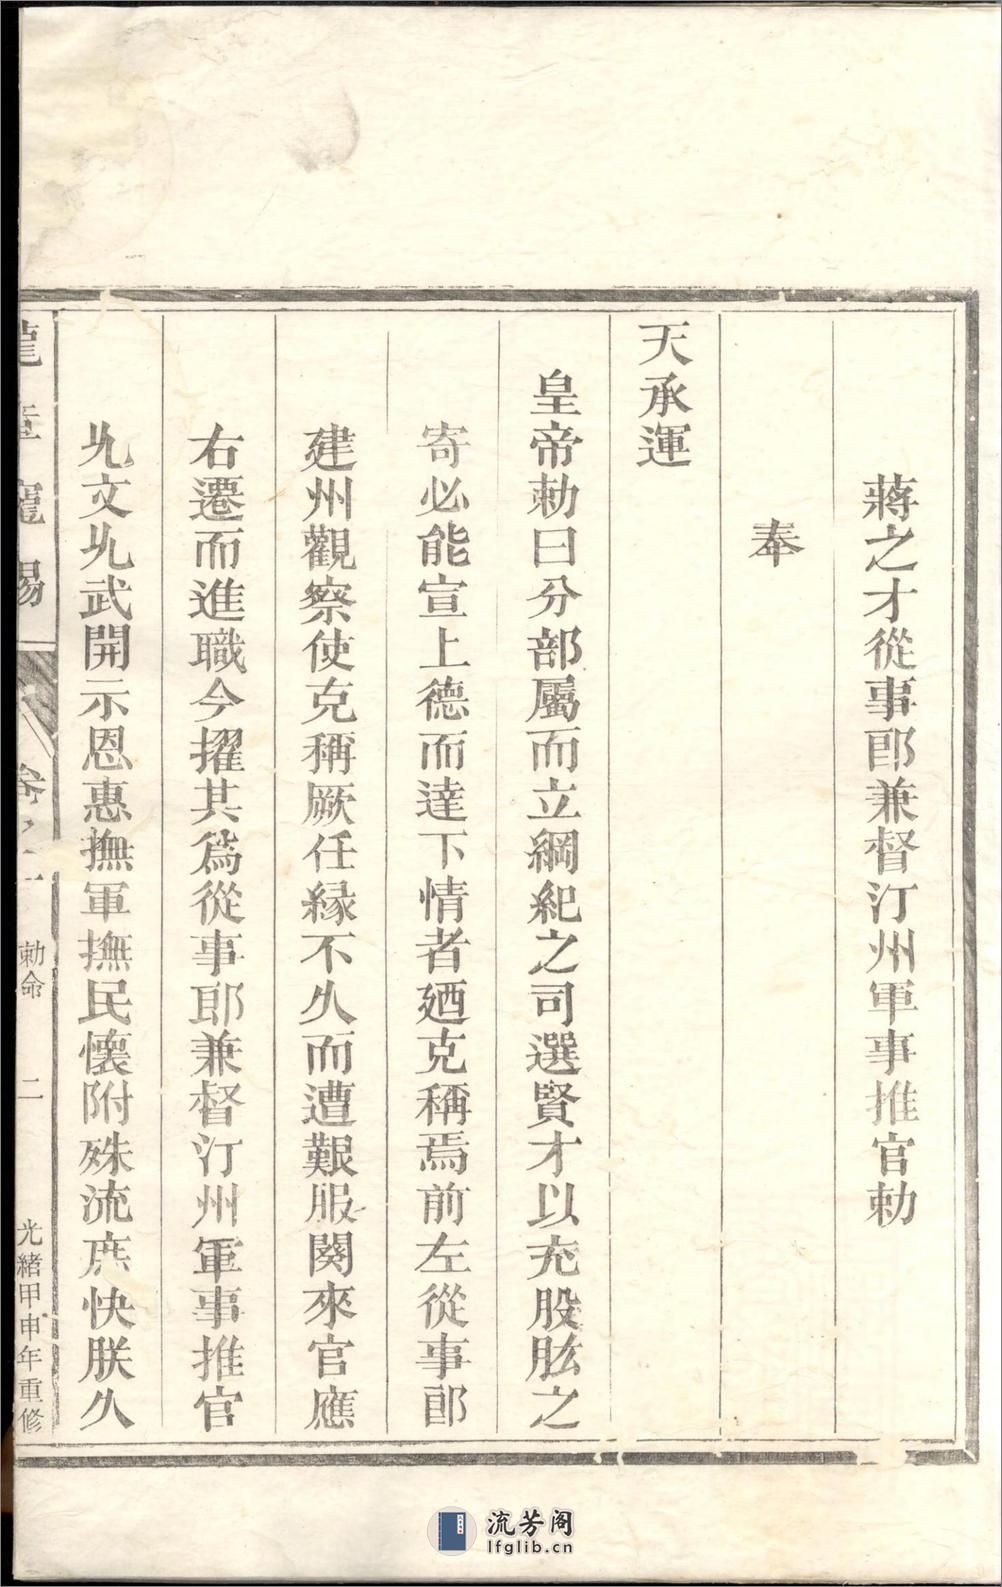 蔣之才從事郎兼督汀州軍事推官勅
奉
天承運
皇帝勅曰分部屬而立綱紀之司選賢才以充股肱之
寄必能宣上德而達下情者廼克稱焉前左從事郎
建州觀察使克稱厥任緣不久而遭艱服闋來官應
右遷而進職今擢其爲從事郎兼督汀州軍事推官
凣文凣武開示恩惠撫軍撫民懷附殊流庶快朕久
龍章寵錫
卷之一
勅命
二
光緒甲申年重修
流芳阁
lfglib.cn